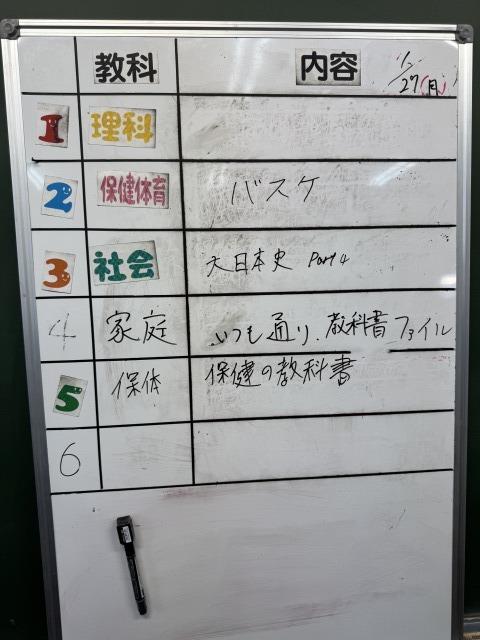 教科 内容 1/27(月)
1 理科
2 保健体育 バスケ
3 社会 大日本史 Part 4
4 家庭 いつも通り、教科書 ファイル
5 保体 保健の教科書
6